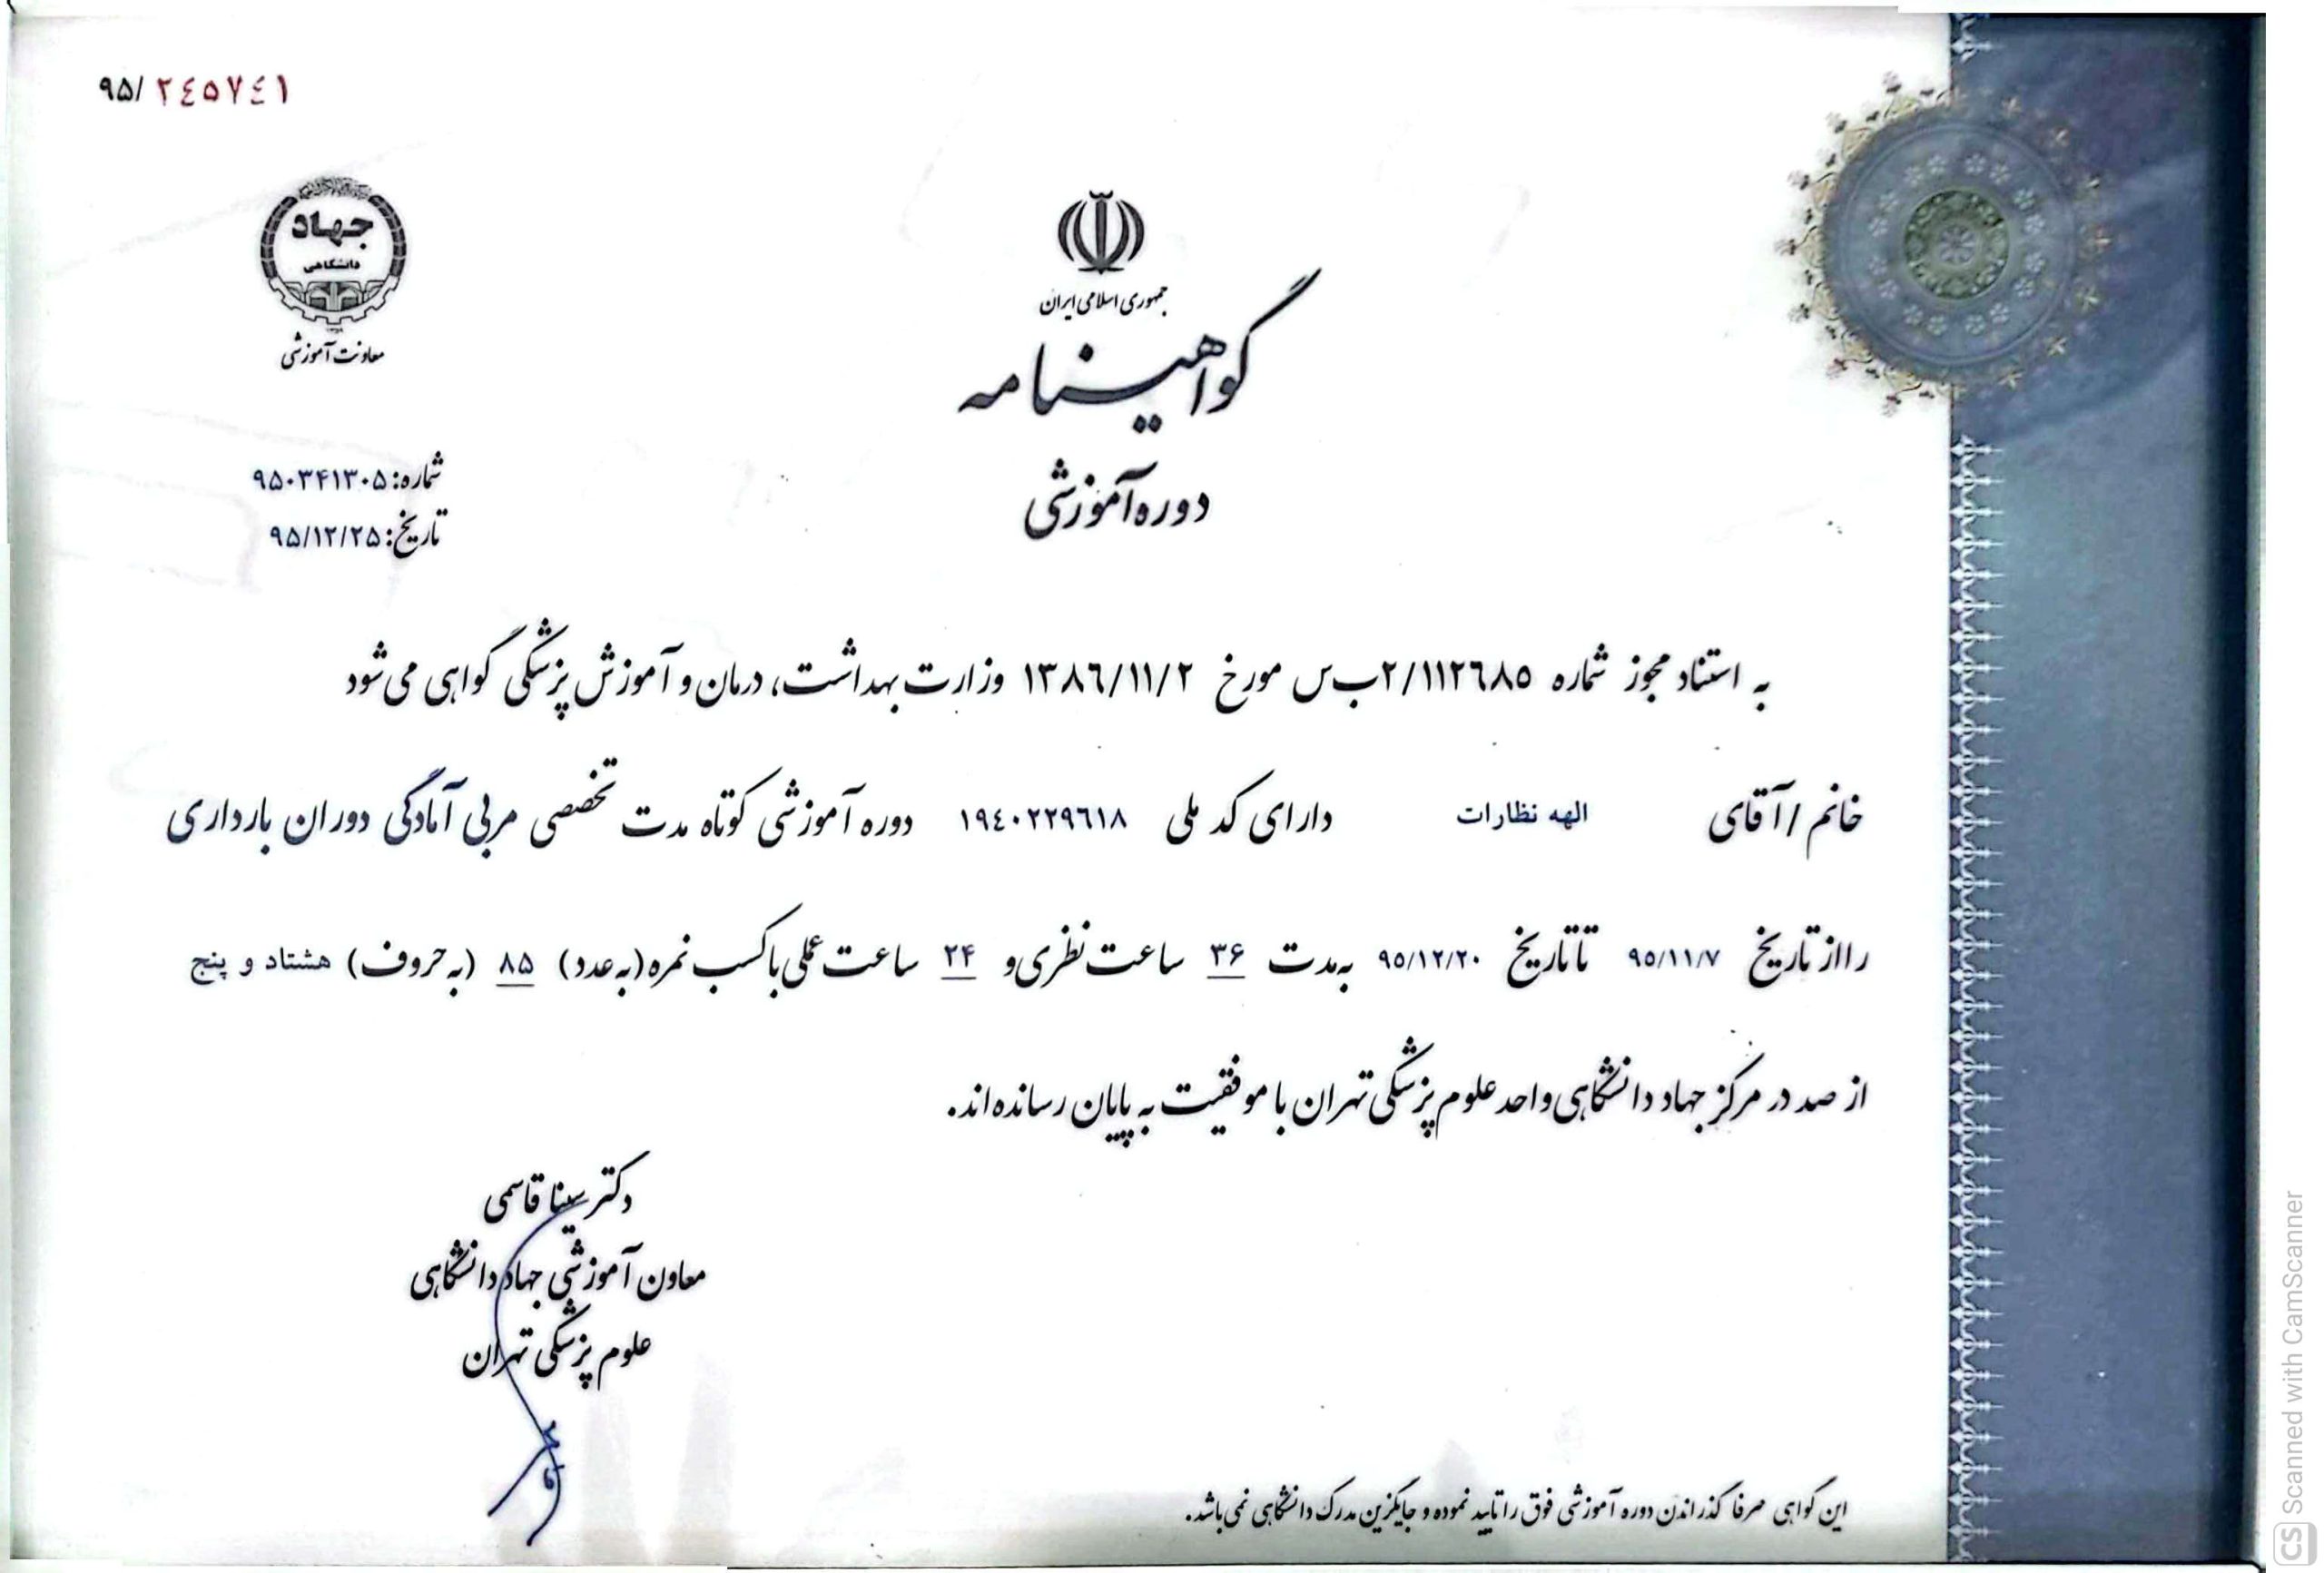 ۹۵/۲٤٥٧٤۱
جهاد
دانشگاهی
۱۳۵۹
معاونت آموزشی
جمهوری اسلامی ایران
گواهینامه
دوره آموزشی
شماره: ۹۵۰۳۴۱۳۰۵
تاریخ: ۹۵/۱۲/۲۵
به استناد مجوز شماره ۲/۱۱۲٦۸٥ب س مورخ ۱۳۸٦/۱۱/۲ وزارت بهداشت، درمان و آموزش پزشکی گواهی می شود
خانم / آقای الهه نظارات دارای کد ملی ۱۹٤۰۲۲۹٦۱۸ دوره آموزشی کوتاه مدت تخصصی مربی آمادگی دوران بارداری
را از تاریخ ۹٥/۱۱/۷ تا تاریخ ۹٥/۱۲/۲۰ به مدت ۳۶ ساعت نظری و ۲۴ ساعت عملی با کسب نمره (به عدد) ۸۵ (به حروف) هشتاد و پنج
از صد در مرکز جهاد دانشگاهی واحد علوم پزشکی تهران با موفقیت به پایان رسانده اند.
دکتر سینا قاسمی
معاون آموزشی جهاد دانشگاهی
علوم پزشکی تهران
این گواهی صرفا گذراندن دوره آموزشی فوق را تایید نموده و جایگزین مدرک دانشگاهی نمی باشد.
CS Scanned with CamScanner